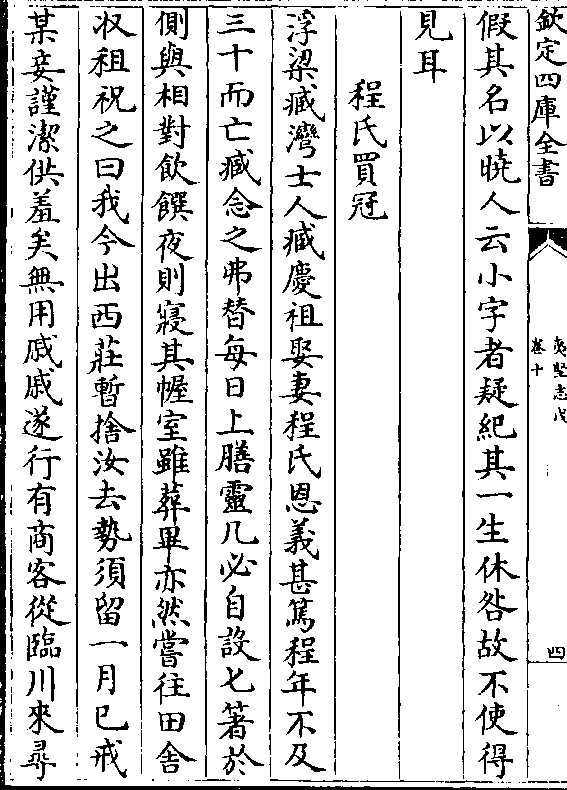 欽定四庫全書
夷堅志戊
卷十
四
假其名以曉人云小字者疑紀其一生休咎故不使得
見耳
程氏買冠
浮梁臧灣士人臧慶祖娶妻程氏恩義甚篤程年不及
三十而亡臧念之弗替每日上膳靈几必自設匕箸於
側與相對飲饌夜則寢其幄室雖葬畢亦然嘗往田舍
收租祝之曰我今出西莊暫捨汝去勢須留一月已戒
某妾謹潔供羞矣無用戚戚遂行有商客從臨川來尋